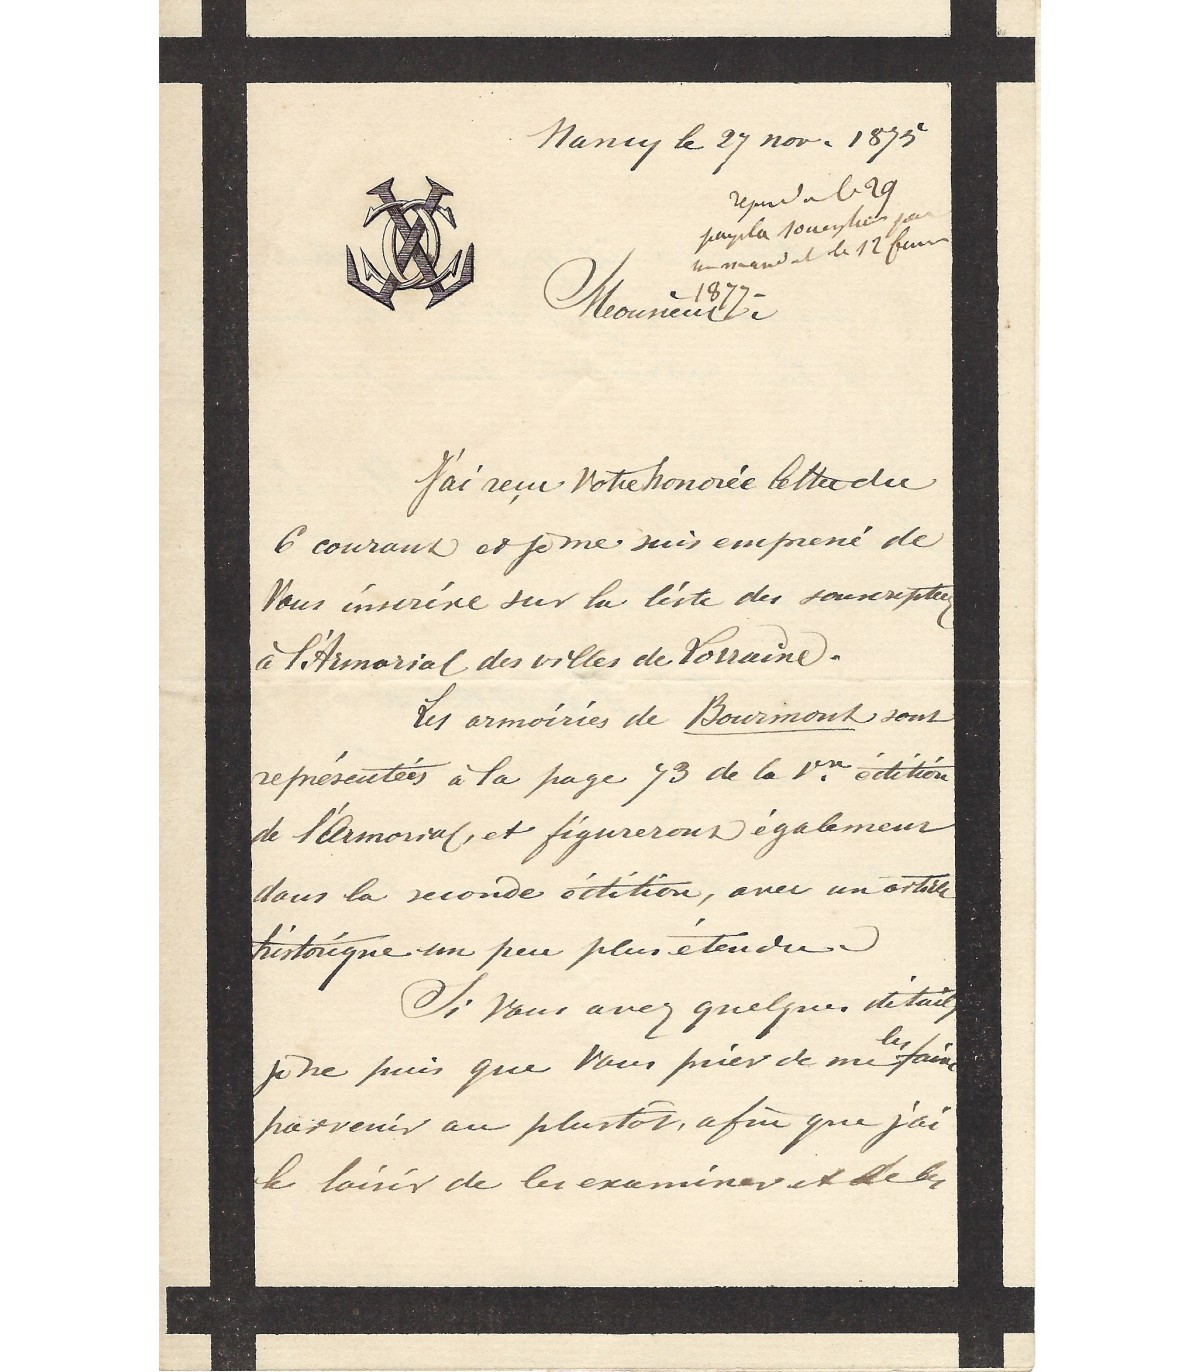 Nancy le 27 nov. 1875
répondu le 29
payé la souscription par
un mandat le 12 février
1877 -
Monsieur
J'ai reçu Votre honorée lettre du
6 courant et je me suis empressé de
Vous inscrire sur la liste des souscripteurs
à l'Armorial des villes de Lorraine.
Les armoiries de Bourmont sont
représentées à la page 73 de la 1re édition
de l'Armorial, et figureront également
dans la seconde édition, avec un article
historique un peu plus étendu.
Si Vous avez quelques détails
je ne puis que Vous prier de me les faire
parvenir au plustôt, afin que j'ai
le loisir de les examiner et de les